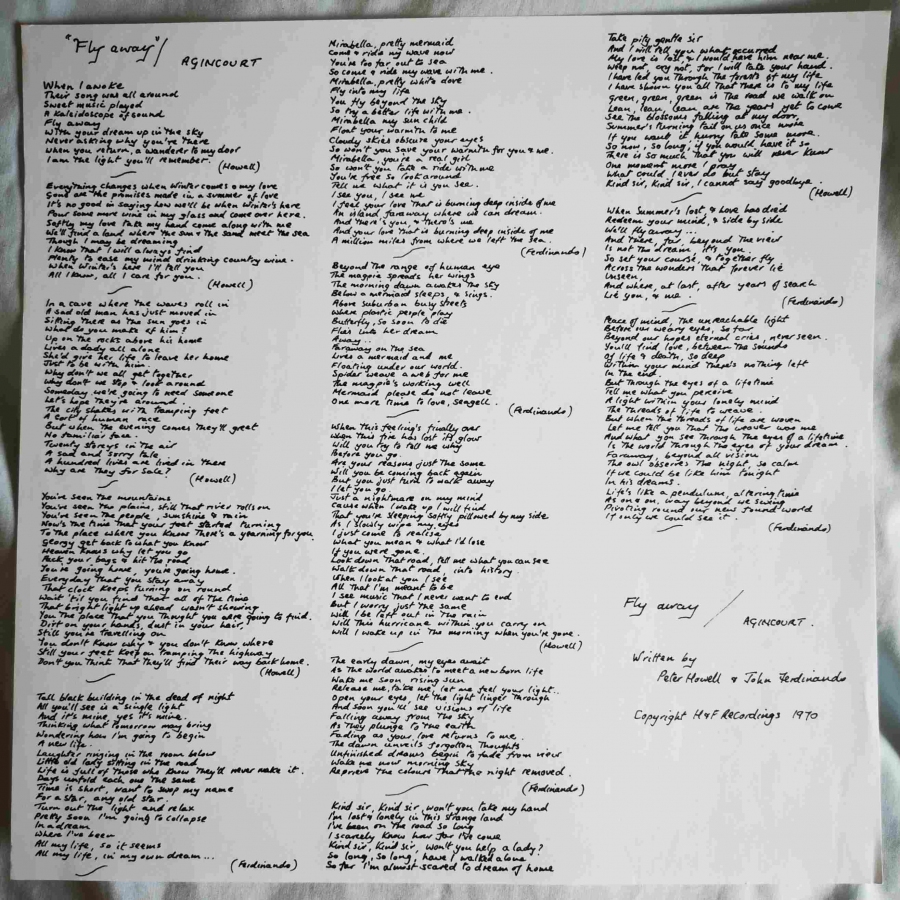 "Fly away"/
AGINCOURT
When I awoke
Their song was all around
Sweet music played
A Kaleidoscope of sound
Fly away
With your dream up in the sky
Never asking why you're there
When you return, a wanderer to my door
I am the light you'll remember.
(Howell)
Everything changes when Winter comes my love
Gone are the promises made in a summer of love
It's no good in saying how we'll be when Winter's here
Pour some more wine in my glass and come over here.
Softly my love take my hand come along with me
We'll find a land where the sun & the sand meet the sea
Though I may be dreaming
I know that I will always find
Plenty to ease my mind drinking country wine.
When Winter's here I'll tell you
All I know, all I care for you.
(Howell)
In a cave where the waves roll in
A sad old man has just moved in
Sitting there as the sun goes in
What do you make of him?
Up on the rocks above his home
Lives a lady all alone
She'd give her life to leave her home
Just to be with him.
Why don't we all get together
Why don't we stop & look around
Someday we're going to need someone
Let's hope they're around.
The city shakes with tramping feet
Sort of human race
But when the evening comes they'll greet
No familiar face.
Twenty storeys in the air
A sad and sorry tale
A hundred lives are lived in there
Why are they for sale?
(Howell)
You've seen the mountains
You've seen the plains, still that river rolls on
You've seen the people, sunshine & rain
Now's the time that your feet started turning
To the place where you know there's a yearning for you
Georgy get back to what you know
Heaven knows why let you go
Pack your bags & hit the road
You're going home, you're going home.
Everyday that you stay away
That clock keeps turning on round
Wait 'til you find that all of the time
That bright light up ahead wasn't showing
You the place that you thought you were going to find.
Dirt on your hands, dust in your hair
Still you're travelling on
You don't know why & you don't know where
Still your feet keep on tramping the highway
Don't you think that they'll find their way back home.
(Howell)
Tall black building in the dead of night
All you'll see is a single light
And it's mine, yes it's mine.
Thinking what tomorrow may bring
Wondering how I'm going to begin
A new life.
Laughter ringing in the room below
Little old lady sitting in the road
Life is full of those who know they'll never make it.
Days unfold each one the same
Time is short, want to swop my name
For a star, any old star.
Turn out the light and relax
Pretty soon I'm going to collapse
In a dream
Where I've been
All my life, so it seems
All my life, in my own dream...
(Ferdinando)
Mirabella, pretty mermaid
Come & ride my wave now
You're too far out to sea
So come & ride my wave with me.
Mirabella, pretty white dove
Fly into my life
You fly beyond the sky
So try a better life with me.
Mirabella my sun child
Float your warmth to me
Cloudy skies obscure your eyes
So won't you save your warmth for you & me.
Mirabella, you're a real girl
So won't you take a ride with me
You're free so look around
Tell me what it is you see.
I see you, I see me
I feel your love that is burning deep inside of me
An island faraway where we can dream.
And there's you, & there's me
And your love that is burning deep inside of me
A million miles from where we left the sea.
(Ferdinando)
Beyond the range of human eye
The magpie spreads her wings
The morning dawn awakes the sky
Below a mermaid sleeps, & sings.
Above suburban busy streets
Where plastic people play
Butterfly, so soon to die
Flies into her dream
Away...
Faraway on the sea
Lives a mermaid and me
Floating under our world.
Spider weave a web for me
The magpie's working well
Mermaid please do not leave
One more time to love, seagell.
(Ferdinando)
When this feeling's finally over
When this fire has lost it's glow
Will you try to tell me why
Before you go.
Are your reasons just the same
Will you be coming back again
But you just turn to walk away
I let you go.
Just a nightmare on my mind
Cause when I wake up I will find
That you're sleeping softly pillowed by my side
As I slowly wipe my eyes
I just come to realise
What you mean & what I'd lose
If you were gone.
Look down that road, tell me what you can see
Walk down that road, into history.
When I look at you I see
All that I'm meant to be
I see music that I never want to end
But I worry just the same
Will I be left out in the rain
Will this hurricane within you carry on
Will I wake up in the morning when you're gone.
(Howell)
The early dawn, my eyes await
As the world awakes to meet a newborn life
Wake me soon rising sun
Release me, take me, let me feel your light..
Open your eyes, let the light linger through
And soon you'll see visions of life
Falling away from the sky
As they plunge to the earth
Fading as your love returns to me.
The dawn unveils forgotten thoughts
Unfinished dreams begin to fade from view
Wake me now morning sky
Reprieve the colours that the night removed.
(Ferdinando)
Kind sir, Kind sir, won't you take my hand
I'm lost & lonely in this strange land
I've been on the road so long
I scarcely know how far I've come
Kind sir, Kind sir, won't you help a lady?
So long, so long, have I walked alone
So far I'm almost scared to dream of home
Take pity gentle sir
And I will tell you what occurred
My love is lost, & I would have him near me.
Weep not, cry not, for I will take your hand.
I have led you through the forests of my life
I have shown you all that there is to my life
Green, green, green is the road we walk on
Lean, lean, lean are the years yet to come
See the blossoms falling at my door,
Summer's turning tail on us once more
If you want to hurry take some more.
So now, so long, if you would have it so
There is so much that you will never know
One moment more I pray
What could I ever do but stay
Kind sir, kind sir, I cannot say goodbye.
(Howell)
When Summer's lost & love has died
Redeem your mind, & side by side
We'll fly away...
And there, far, beyond the view
Is not the dream, it's you.
So set your course, & together fly
Across the wonders that forever lie
Unseen,
And where, at last, after years of search
Lie you, & me.
(Ferdinando)
Peace of mind, the unreachable light
Before our weary eyes, so far
Beyond our hopes eternal cries, never seen.
You'll find love, between the smoke
Of life & death, so deep
Within your mind there's nothing left
In the end.
But through the eyes of a lifetime
Tell me what you perceive
A light within your lonely mind
The threads of life to weave.
But when the threads of life are woven
Let me tell you that the weaver was me
And what you see through the eyes of a lifetime
Is the world through the eyes of your dream.
Faraway, beyond all vision
The owl observes the night, so calm
If we could be like him tonight
In his dreams.
Life's like a pendulum, altering time
As on & on, way beyond we swing
Pivoting round our new found world
If only we could see it.
(Ferdinando)
Fly away /
AGINCOURT.
Written by
Peter Howell & John Ferdinando
Copyright H&F Recordings 1970